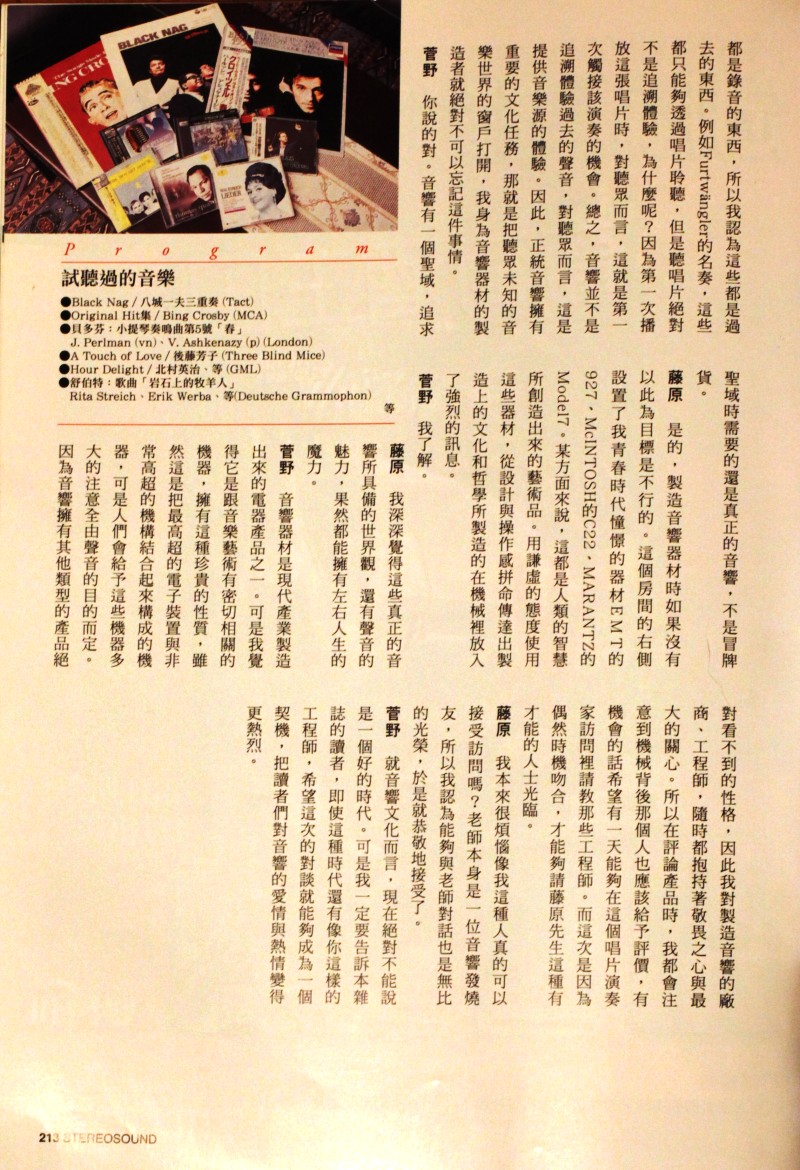 BLACK NAG
都是錄音的東西，所以我認為這些都是過
去的東西。例如Furtwängler的名奏，這些
都只能夠透過唱片聆聽，但是聽唱片絕對
不是追溯體驗，為什麼呢？因為第一次播
放這張唱片時，對聽眾而言，這就是第一
次觸接該演奏的機會。總之，音響並不是
追溯體驗過去的聲音，對聽眾而言，這是
提供音樂源的體驗。因此，正統音響擁有
重要的文化任務，那就是把聽眾未知的音
樂世界的窗戶打開，我身為音響器材的製
造者就絕對不可以忘記這件事情。
菅野　你說的對。音響有一個聖域，追求
聖域時需要的還是真正的音響，不是冒牌
貨。
藤原　是的，製造音響器材時如果沒有
以此為目標是不行的。這個房間的右側
設置了我青春時代憧憬的器材EMT的
927、McINTOSH的C22、MARANTZ的
Model7。某方面來說，這都是人類的智慧
所創造出來的藝術品。用謙虛的態度使用
這些器材，從設計與操作感拼命傳達出製
造上的文化和哲學所製造的在機械裡放入
了強烈的訊息。
菅野　我了解。
Program
試聽過的音樂
●Black Nag / 八城一夫三重奏 (Tact)
●Original Hit集 / Bing Crosby (MCA)
●貝多芬：小提琴奏鳴曲第5號「春」
J. Perlman (vn)、V. Ashkenazy (p) (London)
●A Touch of Love / 後藤芳子 (Three Blind Mice)
●Hour Delight / 北村英治、等 (GML)
●舒伯特：歌曲「岩石上的牧羊人」
Rita Streich、Erik Werba、等(Deutsche Grammophon)
等
藤原　我深深覺得這些真正的音
響所具備的世界觀，還有聲音的
魅力，果然都能擁有左右人生的
魔力。
菅野　音響器材是現代產業製造
出來的電器產品之一。可是我覺
得它是跟音樂藝術有密切相關的
機器，擁有這種珍貴的性質，雖
然這是把最高超的電子裝置與非
常高超的機構結合起來構成的機
器，可是人們會給予這些機器多
大的注意全由聲音的目的而定。
因為音響擁有其他類型的產品絕
對看不到的性格，因此我對製造音響的廠
商、工程師，隨時都抱持著敬畏之心與最
大的關心。所以在評論產品時，我都會注
意到機械背後那個人也應該給予評價，有
機會的話希望有一天能夠在這個唱片演奏
家訪問裡請教那些工程師。而這次是因為
偶然時機吻合，才能夠請藤原先生這種有
才能的人士光臨。
藤原　我本來很煩惱像我這種人真的可以
接受訪問嗎？老師本身是一位音響發燒
友，所以我認為能夠與老師對話也是無比
的光榮，於是就恭敬地接受了。
菅野　就音響文化而言，現在絕對不能說
是一個好的時代。可是我一定要告訴本雜
誌的讀者，即使這種時代還有像你這樣的
工程師，希望這次的對談就能夠成為一個
契機，把讀者們對音響的愛情與熱情變得
更熱烈。
213 STEREOSOUND